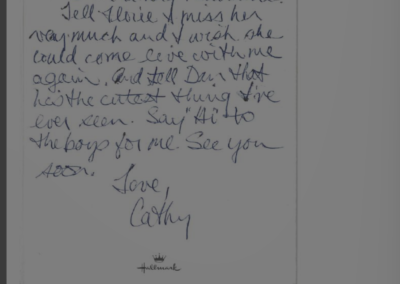 Tell Eloise I miss her
very much and I wish she
could come live with me
again. And tell Dan that
he's the cutest thing I've
ever seen. Say "Hi" to
the boys for me. See you
soon.
Love,
Cathy
Hallmark